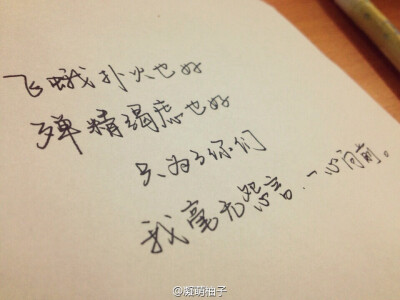 飞蛾扑火也好
殚精竭虑也好
只为了你们
我毫无怨言.一心向前。
@凝萌柚子